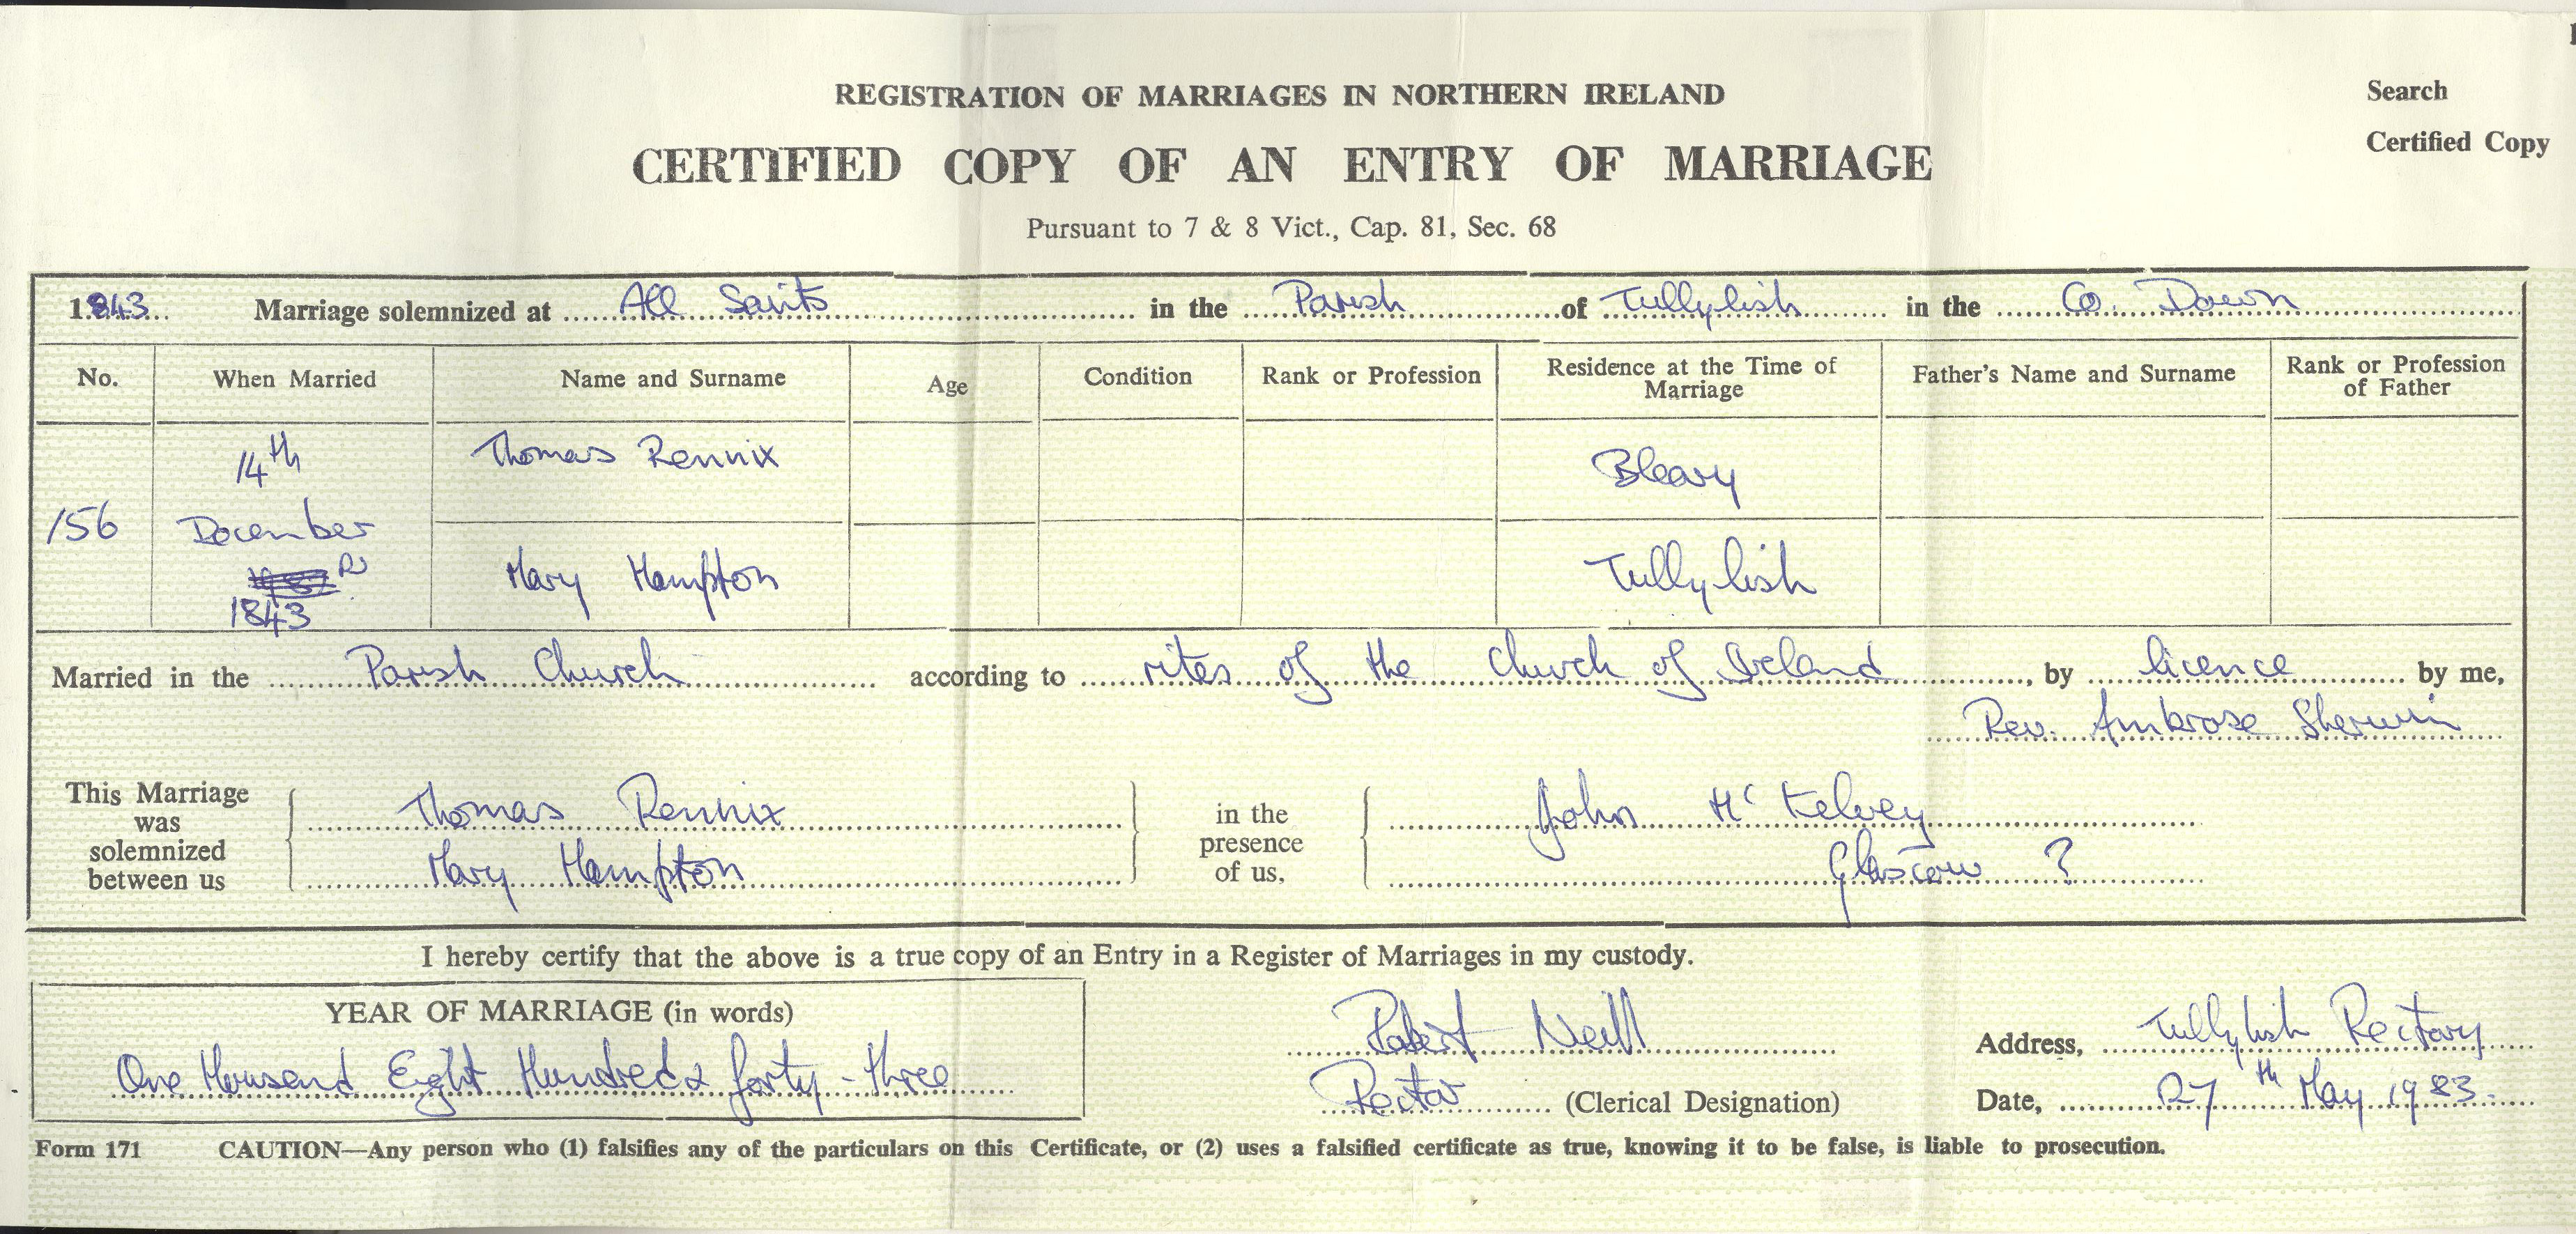 REGISTRATION OF MARRIAGES IN NORTHERN IRELAND
Search
CERTIFIED COPY OF AN ENTRY OF MARRIAGE
Certified Copy
Pursuant to 7 & 8 Vict., Cap. 81, Sec. 68
1843 Marriage solemnized at All Saints in the Parish of Tullylish in the Co. Down
No. When Married Name and Surname Age Condition Rank or Profession Residence at the Time of Marriage Father's Name and Surname Rank or Profession of Father
14th Thomas Rennix Bleary
156 December
Mary Hampton Tullylish
1843
Married in the Parish Church according to rites of the Church of Ireland, by licence by me,
Rev. Ambrose Sherwin
This Marriage was solemnized between us
Thomas Rennix
Mary Hampton
in the presence of us,
John McKelvey
Glascow ?
I hereby certify that the above is a true copy of an Entry in a Register of Marriages in my custody.
YEAR OF MARRIAGE (in words)
One thousand Eight Hundred & forty-three
Robert Neill
Rector (Clerical Designation)
Address, Tullylish Rectory
Date, 27th May 1983.
Form 171 CAUTION—Any person who (1) falsifies any of the particulars on this Certificate, or (2) uses a falsified certificate as true, knowing it to be false, is liable to prosecution.